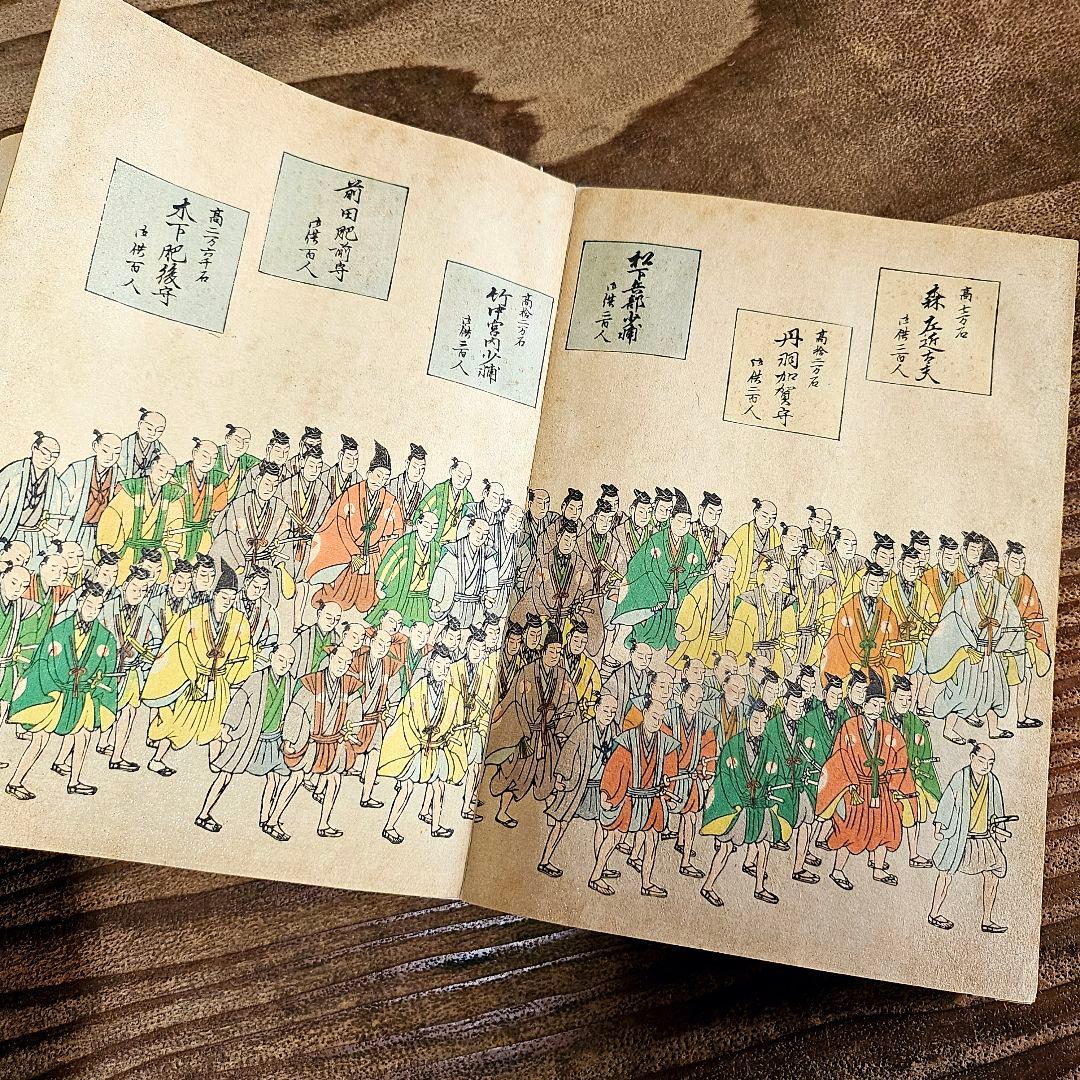 高七万石
森左近大夫
御供二百人
高拾二万石
丹羽加賀守
御供二百人
松下兵部少輔
御供二百人
高拾二万石
竹中宮内少輔
御供二百人
前田肥前守
御供百人
高二万六千石
木下肥後守
御供百人